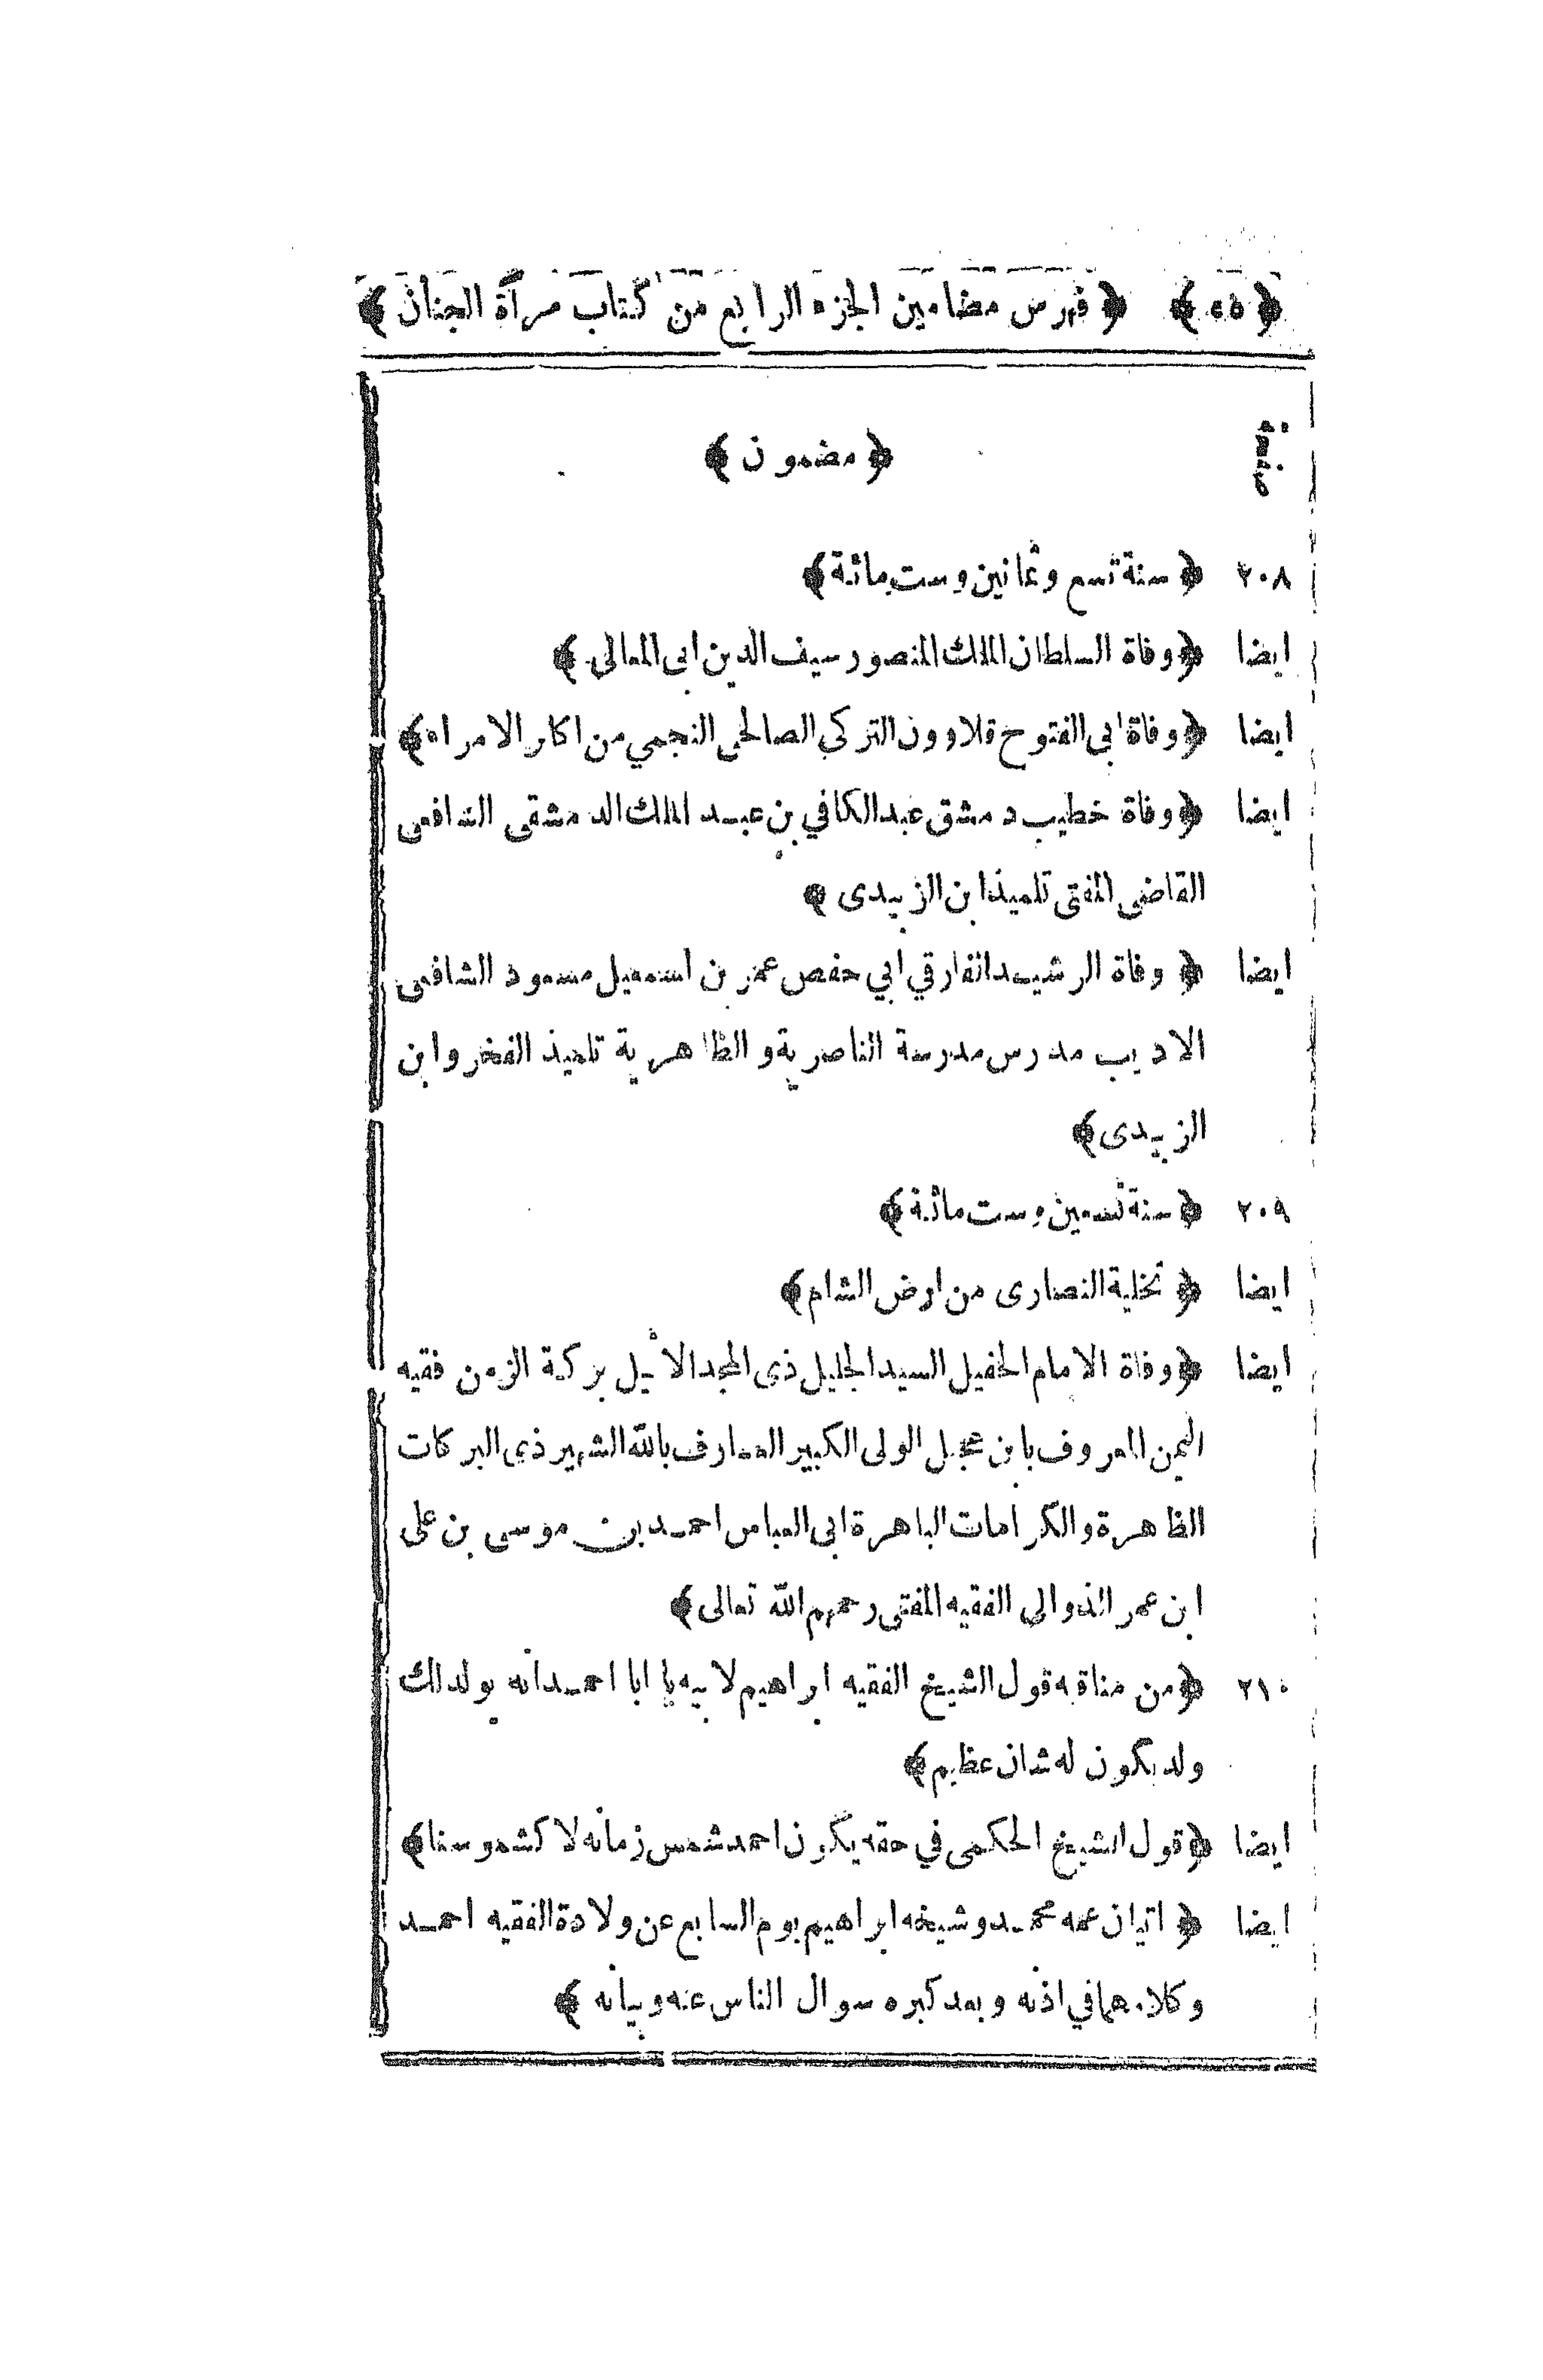 ﴿٤٥﴾ ﴿فهرس مضامين الجزء الرابع من كتاب مرآة الجنان﴾
صفحة ﴿مضمون﴾
٢٠٨ ﴿سنة تسع وثمانين وست مائة﴾
ايضا ﴿وفاة السلطان الملك المنصور سيف الدين ابى المعالى﴾
ايضا ﴿وفاة ابي الفتوح قلاوون التركي الصالحى النجمي من اكابر الامراء﴾
ايضا ﴿وفاة خطيب دمشق عبد الكافي بن عبد الملك الدمشقى الشافعى
القاضى المفتى تلميذ ابن الزبيدى﴾
ايضا ﴿وفاة الرشيد الفارقي ابي حفص عمر بن اسمعيل مسعود الشافعى
الاديب مدرس مدرسة الناصرية والظاهرية تلميذ الفخر وابن
الزبيدى﴾
٢٠٩ ﴿سنة تسعين وست مائة﴾
ايضا ﴿تخلية النصارى من ارض الشام﴾
ايضا ﴿وفاة الامام الحفيل السيد الجليل ذى المجد الاثيل بركة الزمن فقيه
اليمن المعروف بابن عجيل الولى الكبير العارف بالله الشهير ذى البركات
الظاهرة والكرامات الباهرة ابى العباس احمد بن موسى بن على
ابن عمر الذوالى الفقيه المفتى رحمهم الله تعالى﴾
٢١٠ ﴿من مناقبه قول الشيخ الفقيه ابراهيم لابيه يا ابا احمد انه يولد لك
ولد يكون له شان عظيم﴾
ايضا ﴿قول الشيخ الحكمى في حقه يكون احمد شمس زمانه لا كشموسنا﴾
ايضا ﴿اتيان عمه محمد وشيخه ابراهيم يوم السابع عن ولادة الفقيه احمد
وكلامهما في اذنه وبعد كبره سوال الناس عنه وبيانه﴾